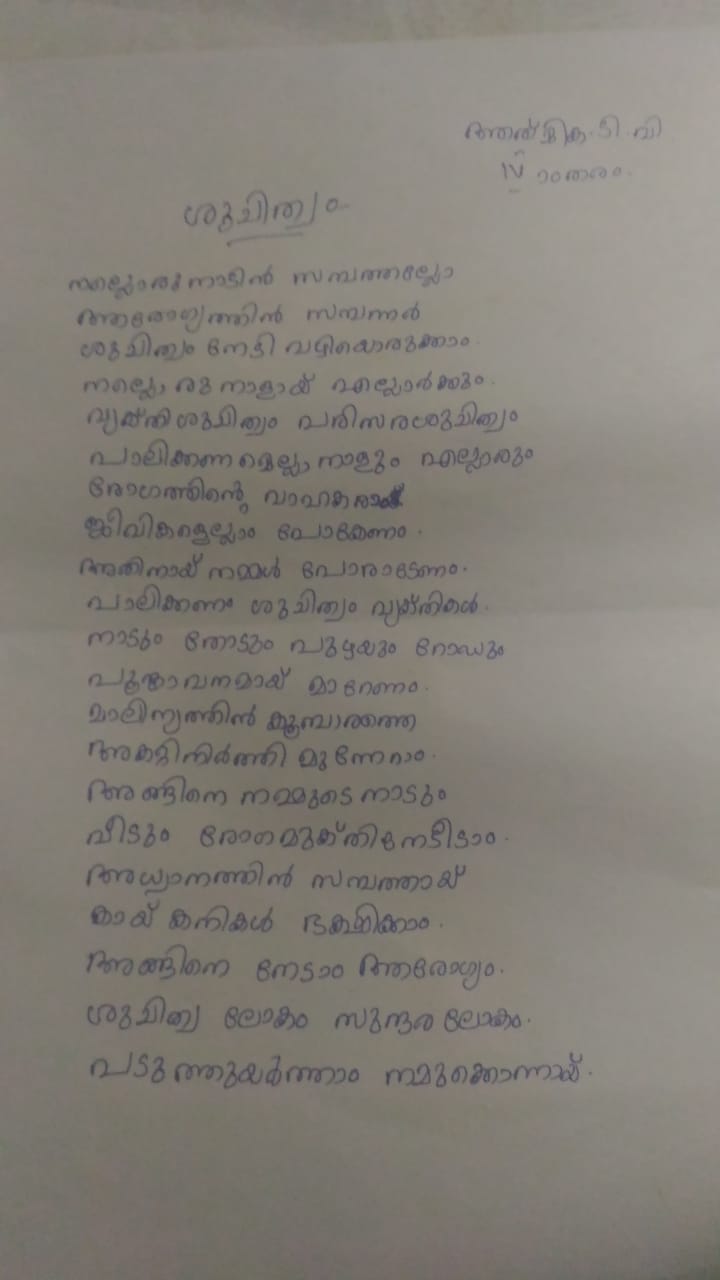 ആത്മിക.ടി.വി
IV ാംതരം.
ശുചിത്വം
നല്ലൊരുനാടിൻ സമ്പത്തല്ലോ
ആരോഗ്യത്തിൻ സമ്പന്നർ
ശുചിത്വം നേടി വഴിയൊരുക്കാം.
നല്ലൊരു നാളായ് എല്ലാർക്കും.
വ്യക്തിശുചിത്വം പരിസരശുചിത്വം
പാലിക്കണമെല്ലാനാളും എല്ലാരും
രോഗത്തിന്റെ വാഹകരായ്
ജീവികളെല്ലാം പോകേണം.
അതിനായ് നമ്മൾ പോരാടേണം.
പാലിക്കണം ശുചിത്വം വ്യക്തികൾ.
നാടും തോടും പുഴയും റോഡും
പൂങ്കാവനമായ് മാറേണം.
മാലിന്യത്തിൻ കൂമ്പാരത്തെ
അകറ്റിനിർത്തി മുന്നേറാം.
അങ്ങിനെ നമ്മുടെ നാടും
വീടും രോഗമുക്തിനേടീടാം.
അധ്വാനത്തിൻ സമ്പത്തായ്
കായ് കനികൾ ഭക്ഷിക്കാം.
അങ്ങിനെ നേടാം ആരോഗ്യം.
ശുചിത്വ ലോകം സുന്ദര ലോകം.
പടുത്തുയർത്താം നമുക്കൊന്നായ്.